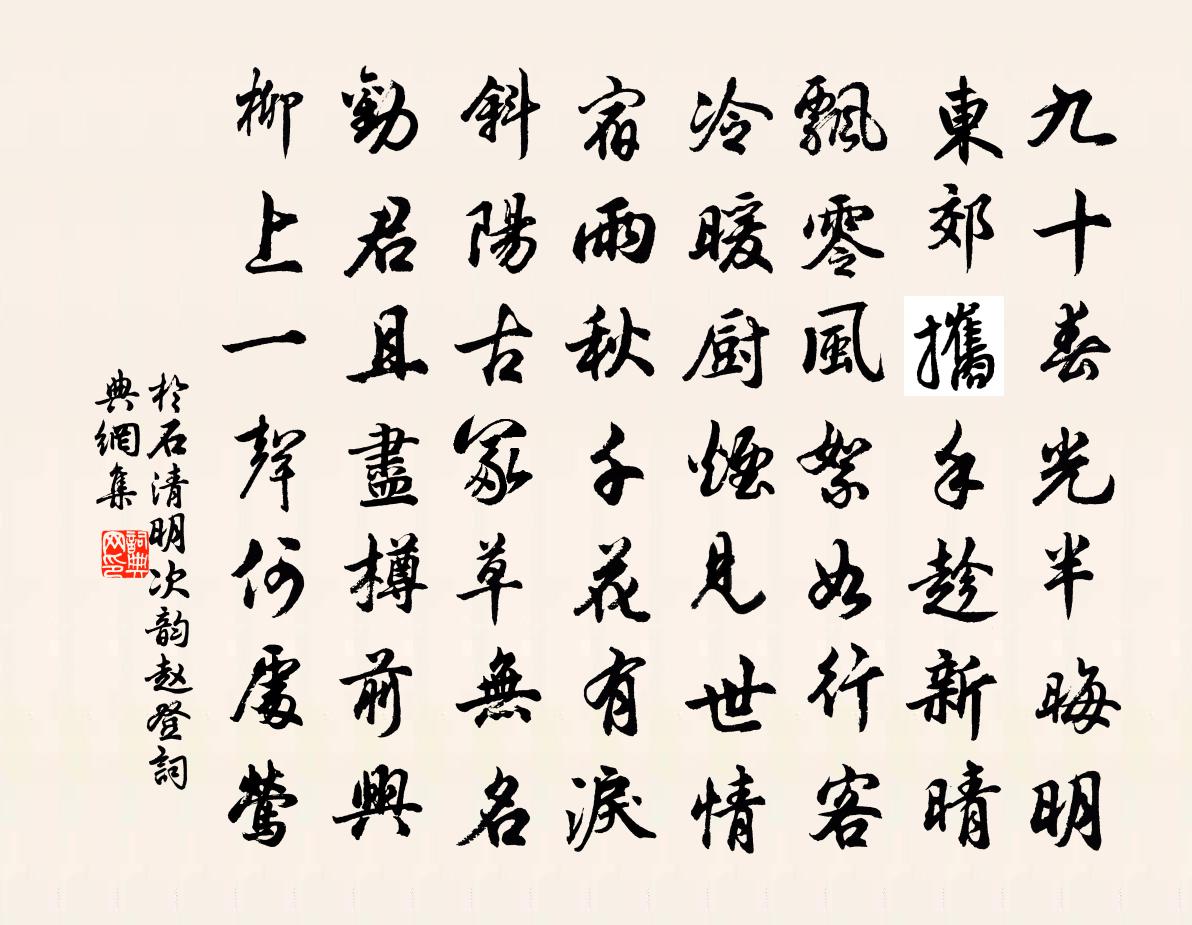 九十春光半晦明
東郊攜手趁新晴
飄零風絮如行客
冷暖厨煙見世情
宿雨秋千花有淚
斜陽古冢草無名
勸君且盡樽前興
柳上一聲何處鶯
於石清明次韵赵登詞
典網集
詞典
网印